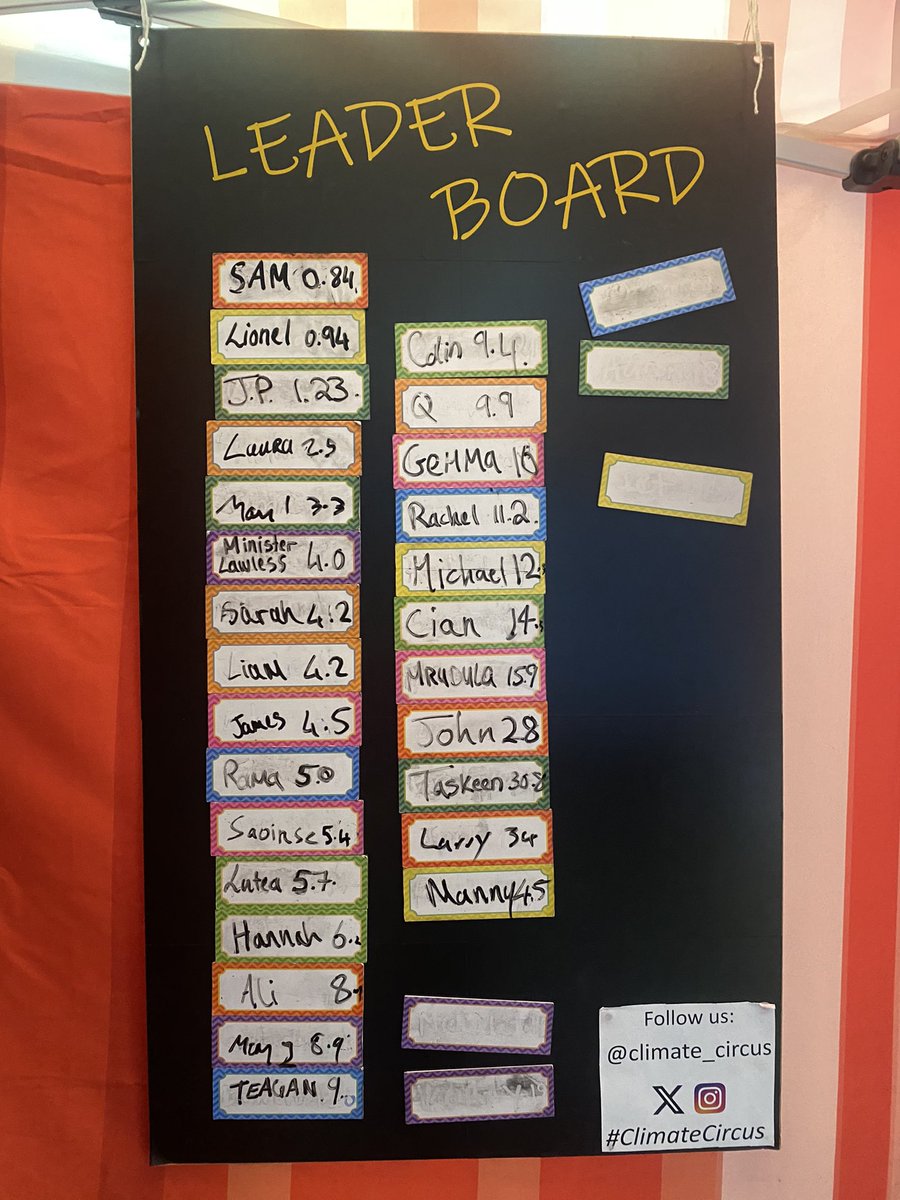 LEADER
BOARD
SAM 0.84
Lionel 0.94
J.P. 1.23
Laura 2.5
May 1 3.3
Minister
Lawless 4.0
Sarah 4.2
LIAM 4.2
James 4.5
Rama 5.0
Saoirse 5.4
Lutea 5.7
Hannah 6.2
Ali 8
May 2 8.9
TEAGAN 9.0
Colin 9.4
Q 9.9
GEMMA 10
Rachel 11.2
Michael 12
Cian 14
MRUDULA 15.9
John 28
Taskeen 30.8
Larry 34
Manny 45
Follow us:
@climate_circus
#ClimateCircus